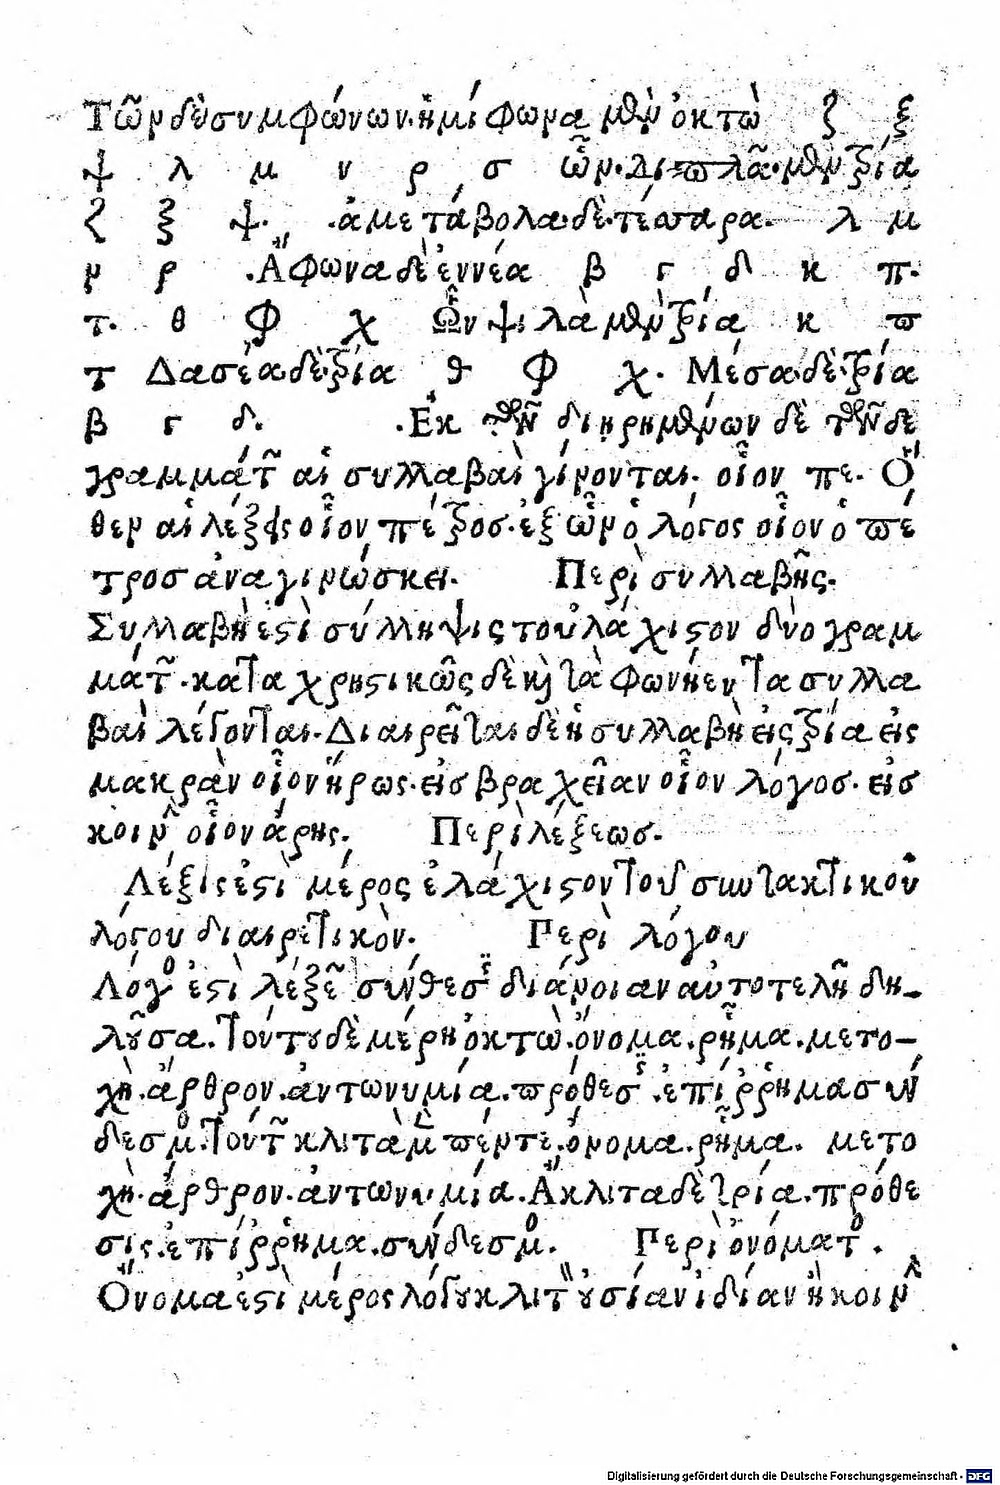 Τῶν δὲ συμφώνων. ἡμίφωνα μὲν ὀκτὼ ζ ξ
ψ λ μ ν ρ σ ὧν. διπλᾶ. μὲν τρία
ζ ξ ψ. .ἀμετάβολα. δὲ. τέσσαρα. λ μ
ν ρ .Ἄφωνα δὲ ἐννέα β γ δ κ π.
τ. θ φ χ Ὧν ψιλὰ μὲν τρία κ π
τ Δασέα. δὲ. τρία θ φ χ. Μέσα. δὲ. τρία
β γ δ. .Ἐκ τῶν διῃρημένων δὲ τῶνδε
γραμμάτων αἱ συλλαβαὶ γίνονται. οἷον πε. Ὅ
θεν αἱ λέξεις οἷον πέτρος. ἐξ ὧν ὁ λόγος οἷον ὁ πέ
τρος ἀναγινώσκει. Περὶ συλλαβῆς.
Συλλαβή ἐστὶ σύλληψις τοὐλάχιστον δύο γραμ
μάτων. καταχρηστικῶς δὲ καὶ τὰ φωνήεντα συλλα
βαὶ λέγονται. Διαιρεῖται δὲ ἡ συλλαβὴ εἰς τρία εἰς
μακρὰν οἷον ἥρως. εἰς βραχεῖαν οἷον λόγος. εἰς
κοινὴν οἷον ἄρης. Περὶ λέξεως.
Λέξις ἐστὶ μέρος ἐλάχιστον τοῦ συντακτικοῦ
λόγου διαιρετικὸν. Περὶ λόγου
Λόγος ἐστὶ λέξεων σύνθεσις διάνοιαν αὐτοτελῆ δη-
λοῦσα. Τούτου δὲ μέρη ὀκτὼ. ὄνομα. ῥῆμα. μετο-
χὴ. ἄρθρον. ἀντωνυμία. πρόθεσις. ἐπίῤῥημα σύν
δεσμος. Τούτων κλιτὰ μὲν πέντε. ὄνομα. ῥῆμα. μετο
χὴ. ἄρθρον. ἀντωνυμία. Ἄκλιτα δὲ τρία. πρόθε
σις. ἐπίῤῥημα. σύνδεσμος. Περὶ ὀνόματος.
Ὄνομα ἐστὶ μέρος λόγου κλιτὸν οὐσίαν ἰδίαν ἢ κοινὴν
Digitalisierung gefördert durch die Deutsche Forschungsgemeinschaft - DFG